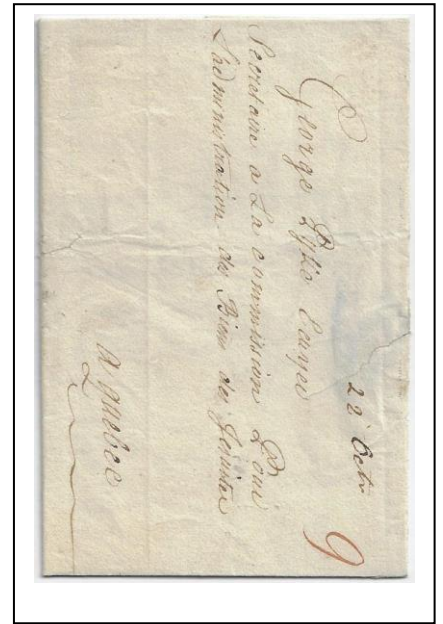 22 Octr
9
George Pyke Ecuyer
Secretaire a La commission Pour
L'administration des Bien des Jesuites
a Quebec